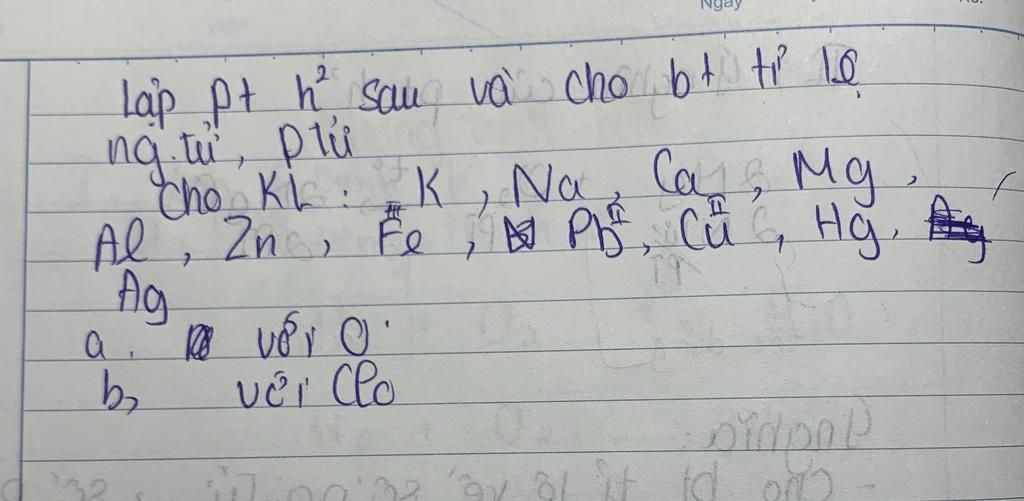 Ngày
lập pt h² sau và cho bt tỉ lệ
ng.tử, ptử
Cho KL : K, Na, Ca, Mg,
Al, Zn, Fe III, Pb II, Cu II, Hg,
Ag
a. với O
b, với Clo